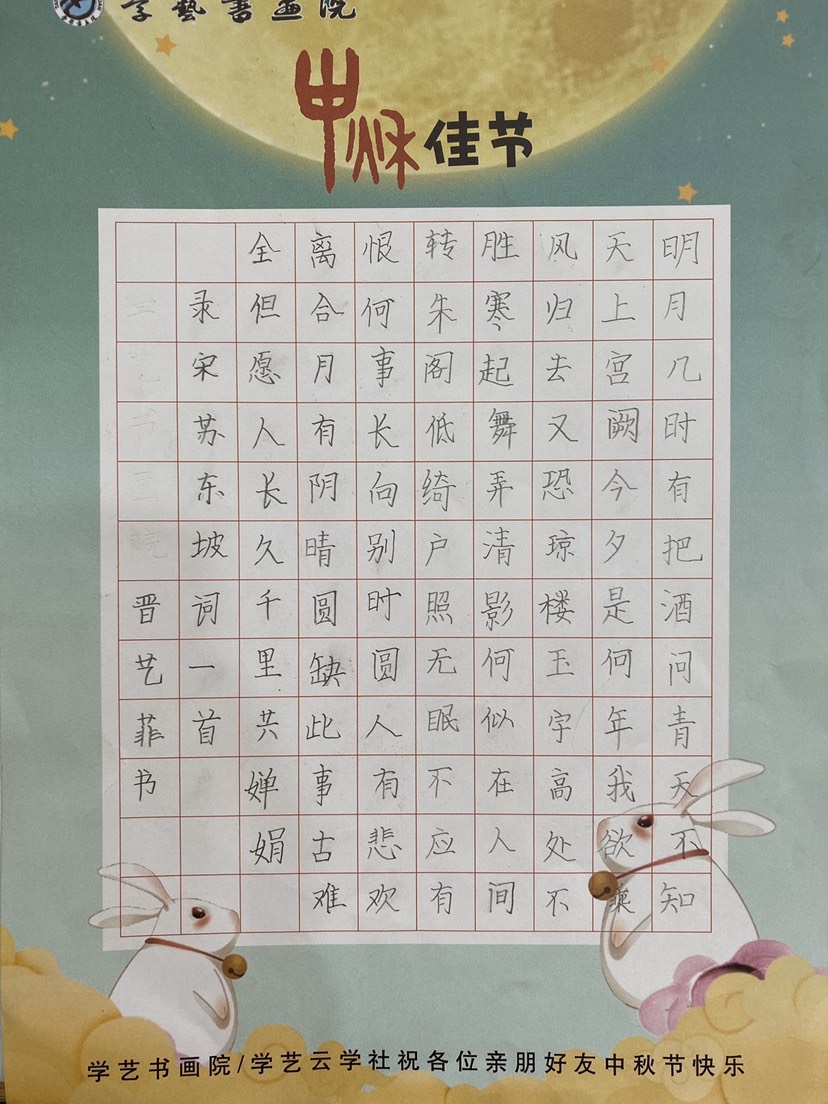 学藝書画院
中秋佳节
明月几时有把酒问青天不知
天上宫阙今夕是何年我欲乘
风归去又恐琼楼玉宇高处不
胜寒起舞弄清影何似在人间
转朱阁低绮户照无眠不应有
恨何事长向别时圆人有悲欢
离合月有阴晴圆缺此事古难
全但愿人长久千里共婵娟
录宋苏东坡词一首
晋艺菲书
学艺书画院/学艺云学社祝各位亲朋好友中秋节快乐